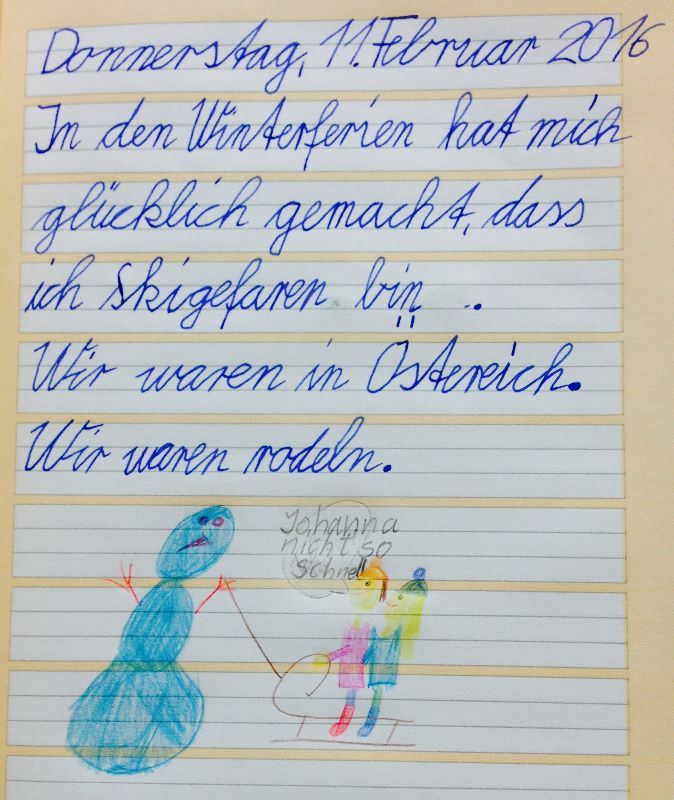 Donnerstag, 11. Februar 2016
In den Winterferien hat mich
glücklich gemacht, dass
ich Skigefaren bin .
Wir waren in Östereich.
Wir waren rodeln.
Johanna
nicht so
schnell